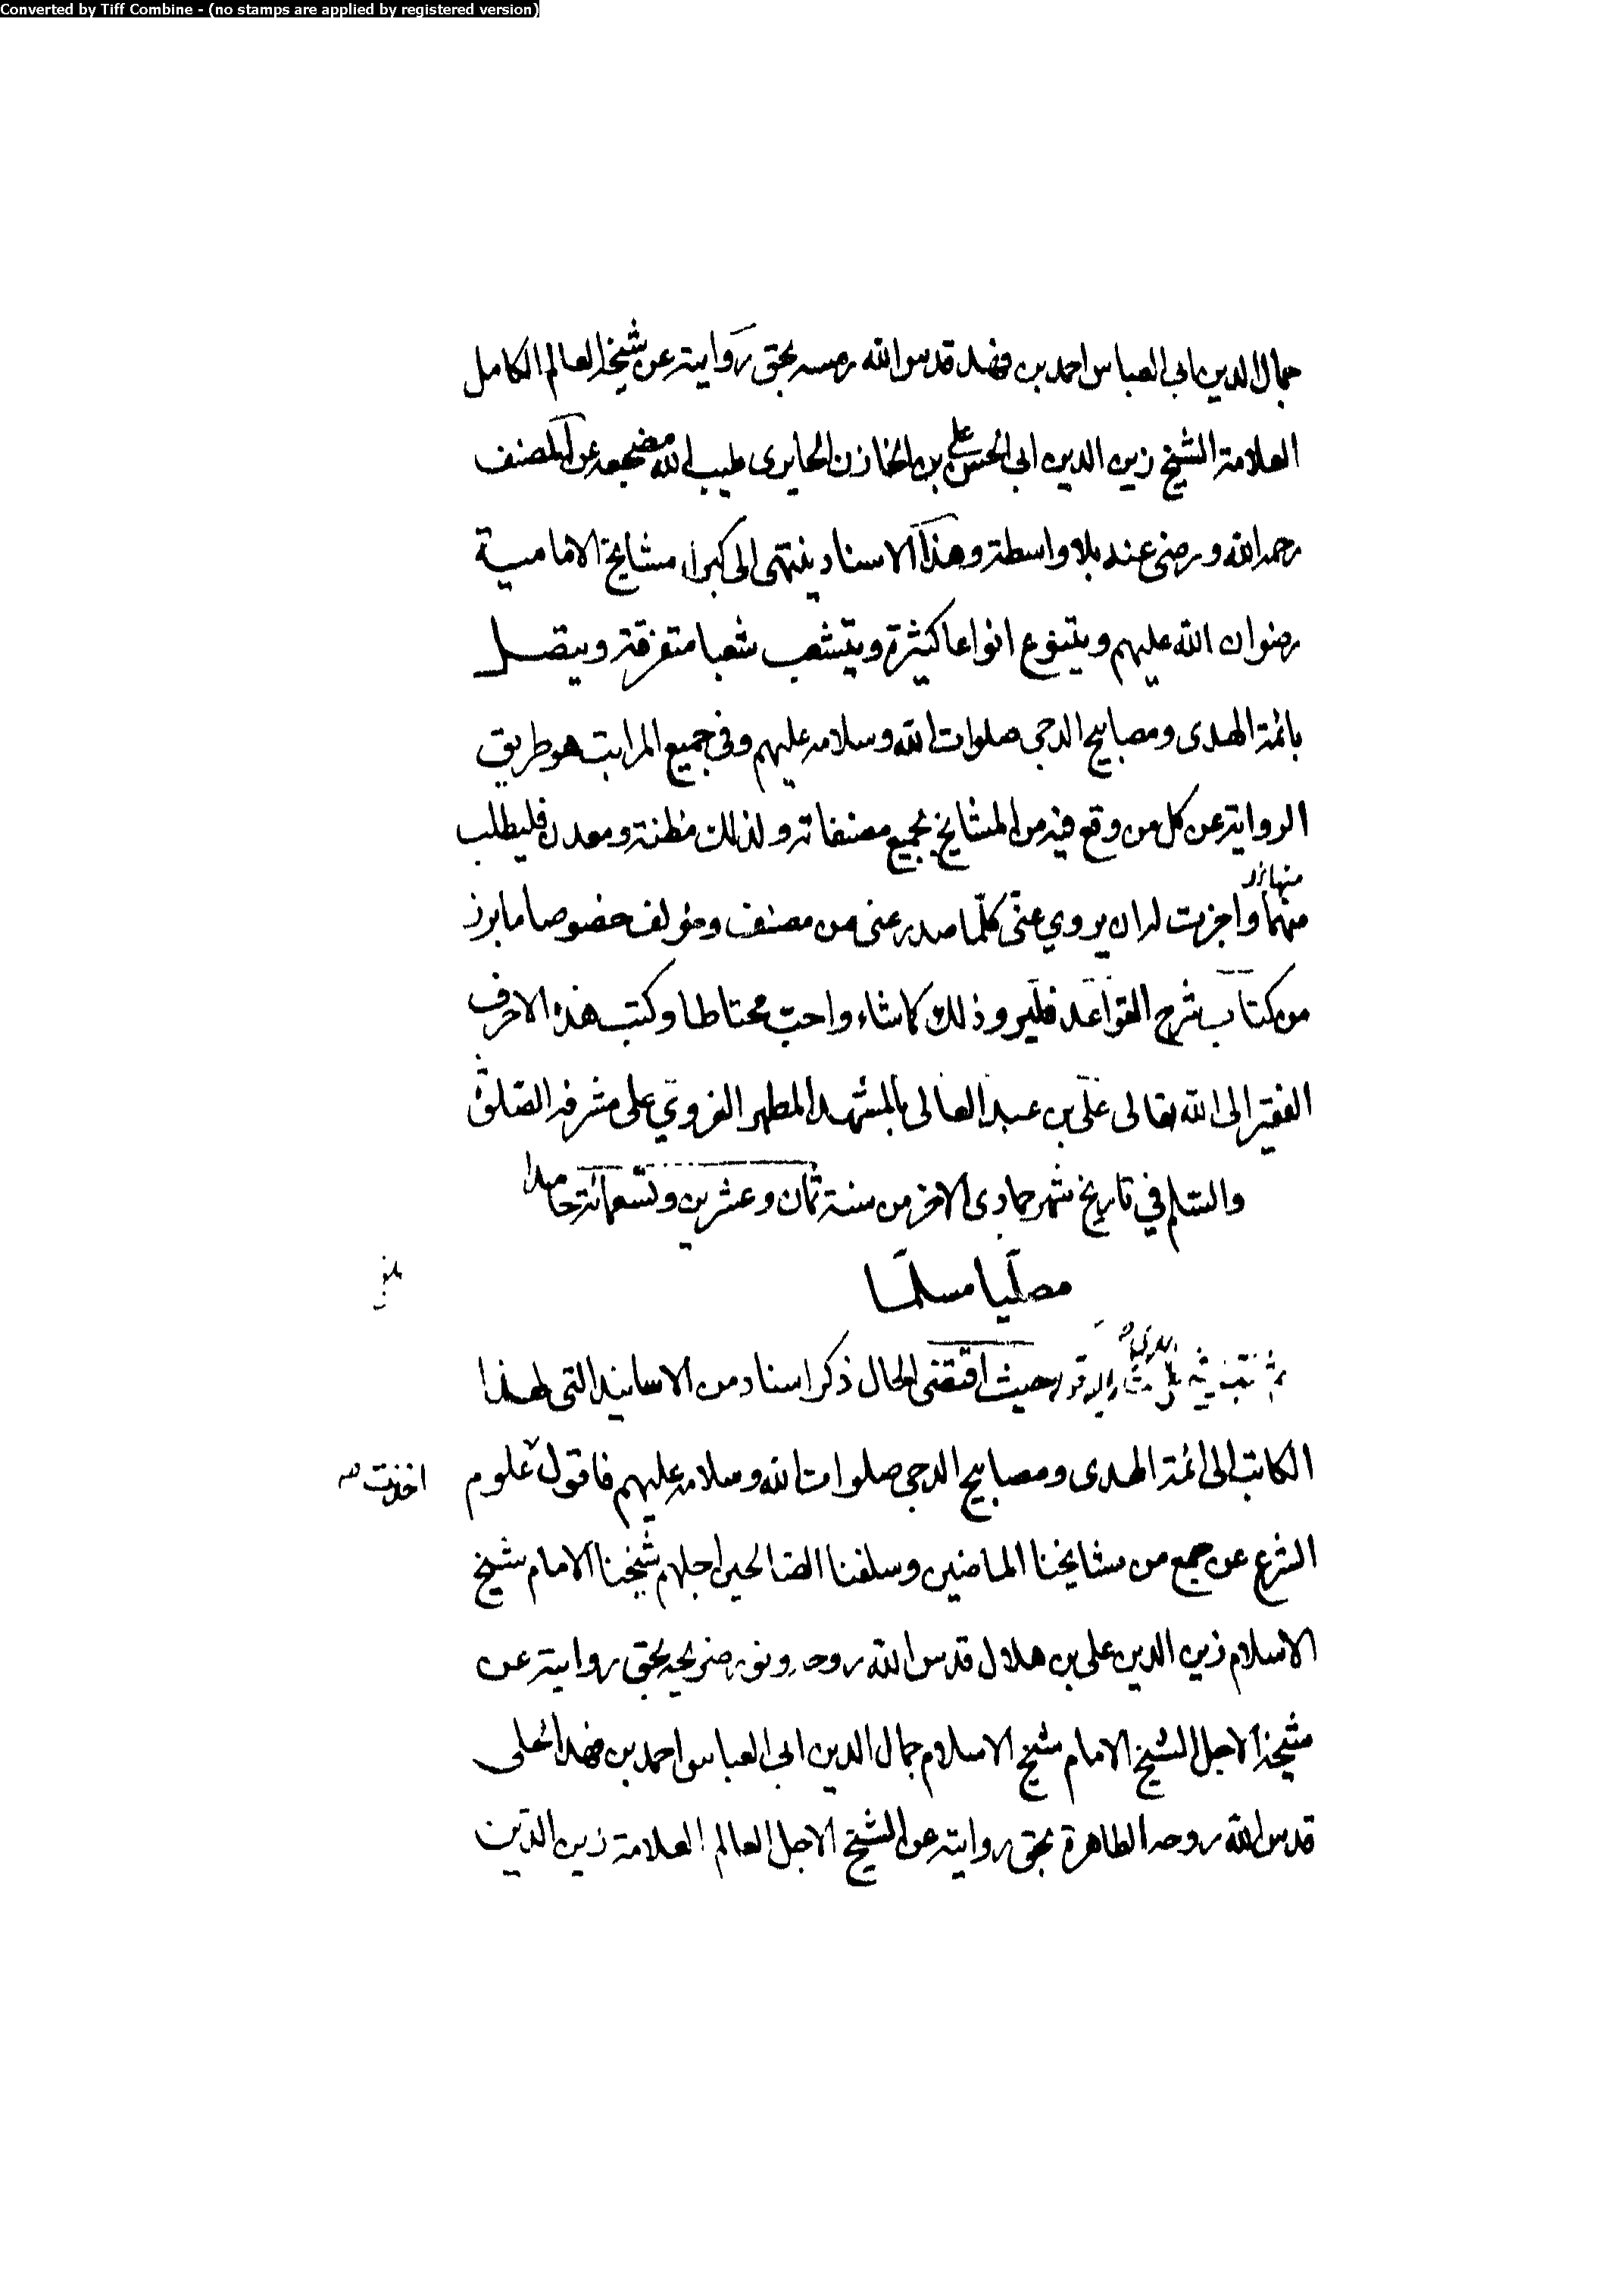 Converted by Tiff Combine - (no stamps are applied by registered version)
جمال الدين ابى العباس احمد بن فهد قدس الله رمسه بحق روايته عن شيخه العالم الكامل
العلامة الشيخ زين الدين ابى الحسن على بن الخازن الحايرى طيب الله مضجعه عن المصنف
رحمه الله ورضى عنه بلا واسطة وهذا الاسناد ينتهى الى كبراء مشايخ الامامية
رضوان الله عليهم ويتنوع انواعا كثيرة ويتشعب شعبا متفرقة ويتصل
بائمة الهدى ومصابيح الدجى صلوات الله وسلامه عليهم وفى جميع المراتب هو طريق
الرواية عن كل من وقع فيه من المشايخ بجميع مصنفاته ولذلك مظنة ومعدن فليطلب
منها
منهما واجزت له ان يروي عنّى كلّما صدر عنى من مصنف ومؤلف خصوصا ما برز
من كتاب شرح القواعد فليرو ذلك كما شاء واحبّ محتاطا وكتب هذه الاحرف
الفقير الى الله تعالى على بن عبد العالى بالمشهد المطهر الغروي على مشرفه الصّلوة
والسّلم في تاريخ شهر جمادى الاخر من سنة ثمان وعشرين وتسعمائة حامدا
مصلّيا مسلمّا
حيث اقتضى الحال ذكر اسناد من الاسانيد التى لهذا
الكاتب الى ائمة الهدى ومصابيح الدجى صلوات الله وسلامه عليهم فاقول علوم
اخذت
الشرع عن جمع من مشايخنا الماضين وسلفنا الصّالحين اجلهم شيخنا الامام شيخ
الاسلام زين الدين على بن هلال قدس الله روحه ونور ضريحه بحق روايته عن
شيخه الاجل الشيخ الامام شيخ الاسلام جمال الدين ابى العباس احمد بن فهد الحلى
قدس الله روحه الطاهرة بحق روايته عن الشيخ الاجل العالم العلامة زين الدّين